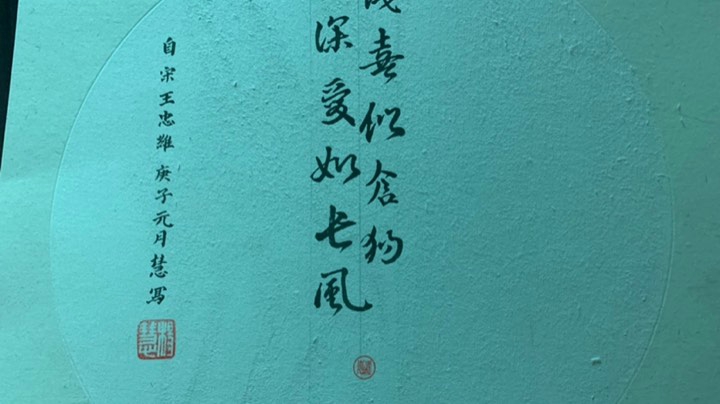 喜似倉狗
深愛如長風
自宋王忠維 庚子元月慧寫